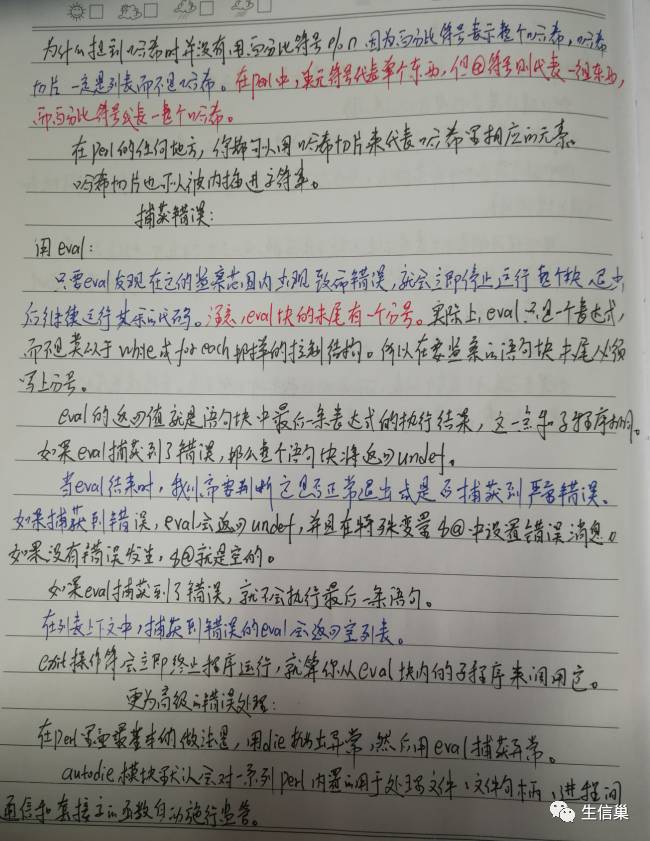 为什么提到哈希时并没有用百分比符号%?因为百分比符号表示整个哈希,哈希
切片一定是列表而不是哈希。在Perl中,美元符号代表单个东西,但@符号则代表一组东西,
而百分比符号代表一整个哈希。
在Perl的任何地方,你都可以用哈希切片来代表哈希里相应的元素。
哈希切片也可以被内插进字符串。
捕获错误:
用eval:
只要eval发现在它的监察范围内出现致命错误,就会立即停止运行整个块,退出
后继续运行其余的代码。注意,eval块的末尾有一个分号。实际上,eval只是一个表达式,
而不是类似于while或foreach那样的控制结构。所以在要监察的语句块末尾必须
写上分号。
eval的返回值就是语句块中最后一条表达式的执行结果,这一点和子程序相同。
如果eval捕获到了错误,那么整个语句块将返回undef。
当eval结束时,我们需要判断它是否正常退出或是否捕获到严重错误。
如果捕获到错误,eval会返回undef,并且在特殊变量$@中设置错误消息。
如果没有错误发生,$@就是空的。
如果eval捕获到了错误,就不会执行最后一条语句。
在列表上下文中,捕获到错误的eval会返回空列表。
exit操作符会立即终止程序运行,就算你从eval块内的子程序来调用它。
更为高级的错误处理:
在Perl里面最基本的做法是,用die抛出异常,然后用eval捕获异常。
autodie模块默认会对一系列Perl内置的用于处理文件、文件句柄、进程间
通信和套接字的函数自动施行监管。
生信巢